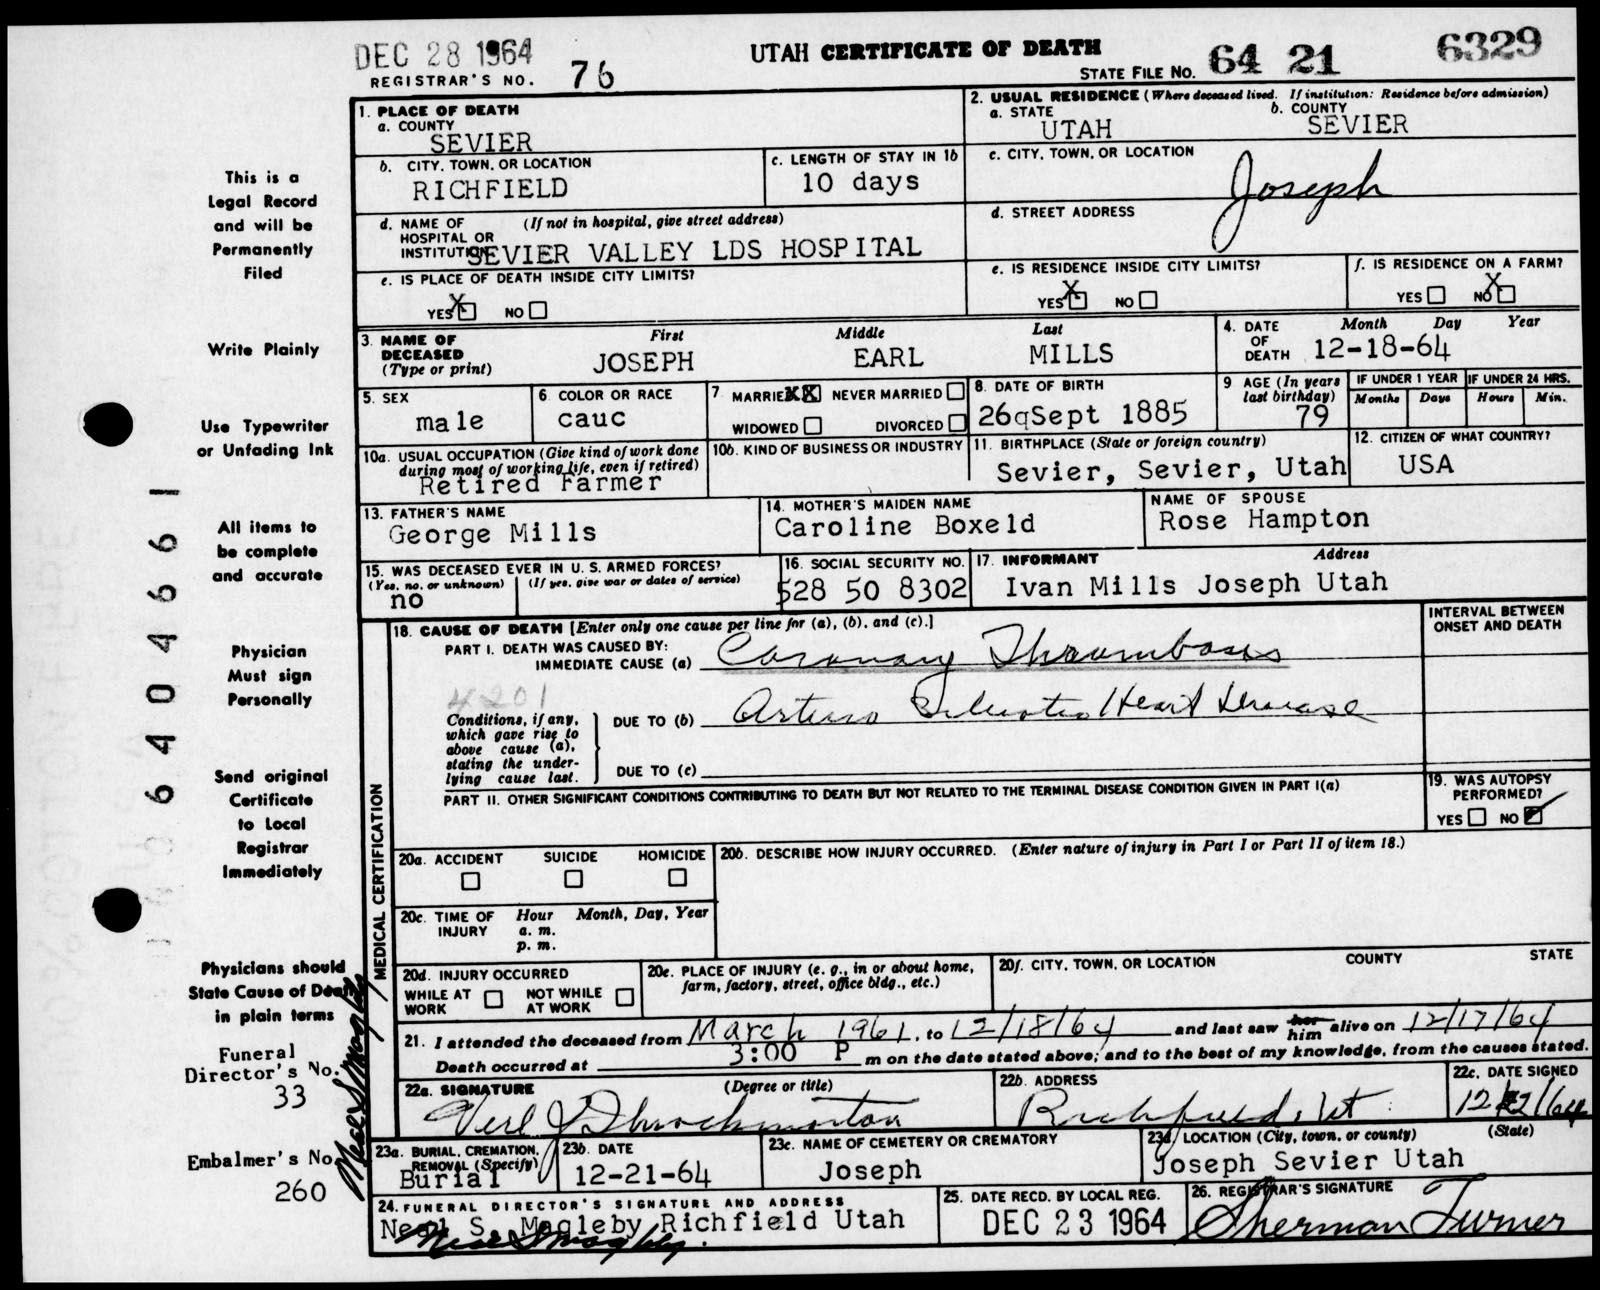 DEC 28 1964
UTAH CERTIFICATE OF DEATH
6329
REGISTRAR'S NO. 76
STATE FILE NO. 64 21
1. PLACE OF DEATH
a. COUNTY
SEVIER
2. USUAL RESIDENCE (Where deceased lived. If institution: Residence before admission)
a. STATE
UTAH
b. COUNTY
SEVIER
b. CITY, TOWN, OR LOCATION
RICHFIELD
c. LENGTH OF STAY IN 1b
10 days
c. CITY, TOWN, OR LOCATION
Joseph
d. NAME OF HOSPITAL OR INSTITUTION
(If not in hospital, give street address)
SEVIER VALLEY LDS HOSPITAL
d. STREET ADDRESS
e. IS PLACE OF DEATH INSIDE CITY LIMITS?
YES X NO
e. IS RESIDENCE INSIDE CITY LIMITS?
YES X NO
f. IS RESIDENCE ON A FARM?
YES NO X
3. NAME OF DECEASED (Type or print)
First Middle Last
JOSEPH EARL MILLS
4. DATE OF DEATH
Month Day Year
12-18-64
5. SEX
male
6. COLOR OR RACE
cauc
7. MARRIED XX NEVER MARRIED
WIDOWED DIVORCED
8. DATE OF BIRTH
26qSept 1885
9 AGE (In years last birthday)
79
IF UNDER 1 YEAR
Months Days
IF UNDER 24 HRS.
Hours Min.
10a. USUAL OCCUPATION (Give kind of work done during most of working life, even if retired)
Retired Farmer
10b. KIND OF BUSINESS OR INDUSTRY
11. BIRTHPLACE (State or foreign country)
Sevier, Sevier, Utah
12. CITIZEN OF WHAT COUNTRY?
USA
13. FATHER'S NAME
George Mills
14. MOTHER'S MAIDEN NAME
Caroline Boxeld
NAME OF SPOUSE
Rose Hampton
15. WAS DECEASED EVER IN U. S. ARMED FORCES?
(Yes, no, or unknown) (If yes, give war or dates of service)
no
16. SOCIAL SECURITY NO.
528 50 8302
17. INFORMANT Address
Ivan Mills Joseph Utah
MEDICAL CERTIFICATION
18. CAUSE OF DEATH [Enter only one cause per line for (a), (b), and (c).]
INTERVAL BETWEEN ONSET AND DEATH
PART I. DEATH WAS CAUSED BY:
IMMEDIATE CAUSE (a) Coronary Thrombosis
4201
Conditions, if any, which gave rise to above cause (a), stating the underlying cause last.
DUE TO (b) Arterio Sclerotic Heart Disease
DUE TO (c)
PART II. OTHER SIGNIFICANT CONDITIONS CONTRIBUTING TO DEATH BUT NOT RELATED TO THE TERMINAL DISEASE CONDITION GIVEN IN PART I(a)
19. WAS AUTOPSY PERFORMED?
YES NO
20a. ACCIDENT SUICIDE HOMICIDE
20b. DESCRIBE HOW INJURY OCCURRED. (Enter nature of injury in Part I or Part II of item 18.)
20c. TIME OF INJURY
Hour Month, Day, Year
a. m.
p. m.
20d. INJURY OCCURRED
WHILE AT WORK NOT WHILE AT WORK
20e. PLACE OF INJURY (e. g., in or about home, farm, factory, street, office bldg., etc.)
20f. CITY, TOWN, OR LOCATION COUNTY STATE
21. I attended the deceased from March 1961, to 12/18/64 and last saw her him alive on 12/17/64
Death occurred at 3:00 P m on the date stated above; and to the best of my knowledge, from the causes stated.
22a. SIGNATURE (Degree or title)
Verl J Throckmorton
22b. ADDRESS
Richfield, Ut
22c. DATE SIGNED
12/22/64
23a. BURIAL, CREMATION, REMOVAL (Specify)
Burial
23b. DATE
12-21-64
23c. NAME OF CEMETERY OR CREMATORY
Joseph
23d. LOCATION (City, town, or county) (State)
Joseph Sevier Utah
24. FUNERAL DIRECTOR'S SIGNATURE AND ADDRESS
Neal S. Magleby Richfield Utah
Neal S Magleby
25. DATE RECD. BY LOCAL REG.
DEC 23 1964
26. REGISTRAR'S SIGNATURE
Sherman Turner
This is a
Legal Record
and will be
Permanently
Filed
Write Plainly
Use Typewriter
or Unfading Ink
All items to
be complete
and accurate
Physician
Must sign
Personally
Send original
Certificate
to Local
Registrar
Immediately
Physicians should
State Cause of Death
in plain terms
Funeral
Director's No.
33
Embalmer's No.
260
Neal S Magleby
6404661